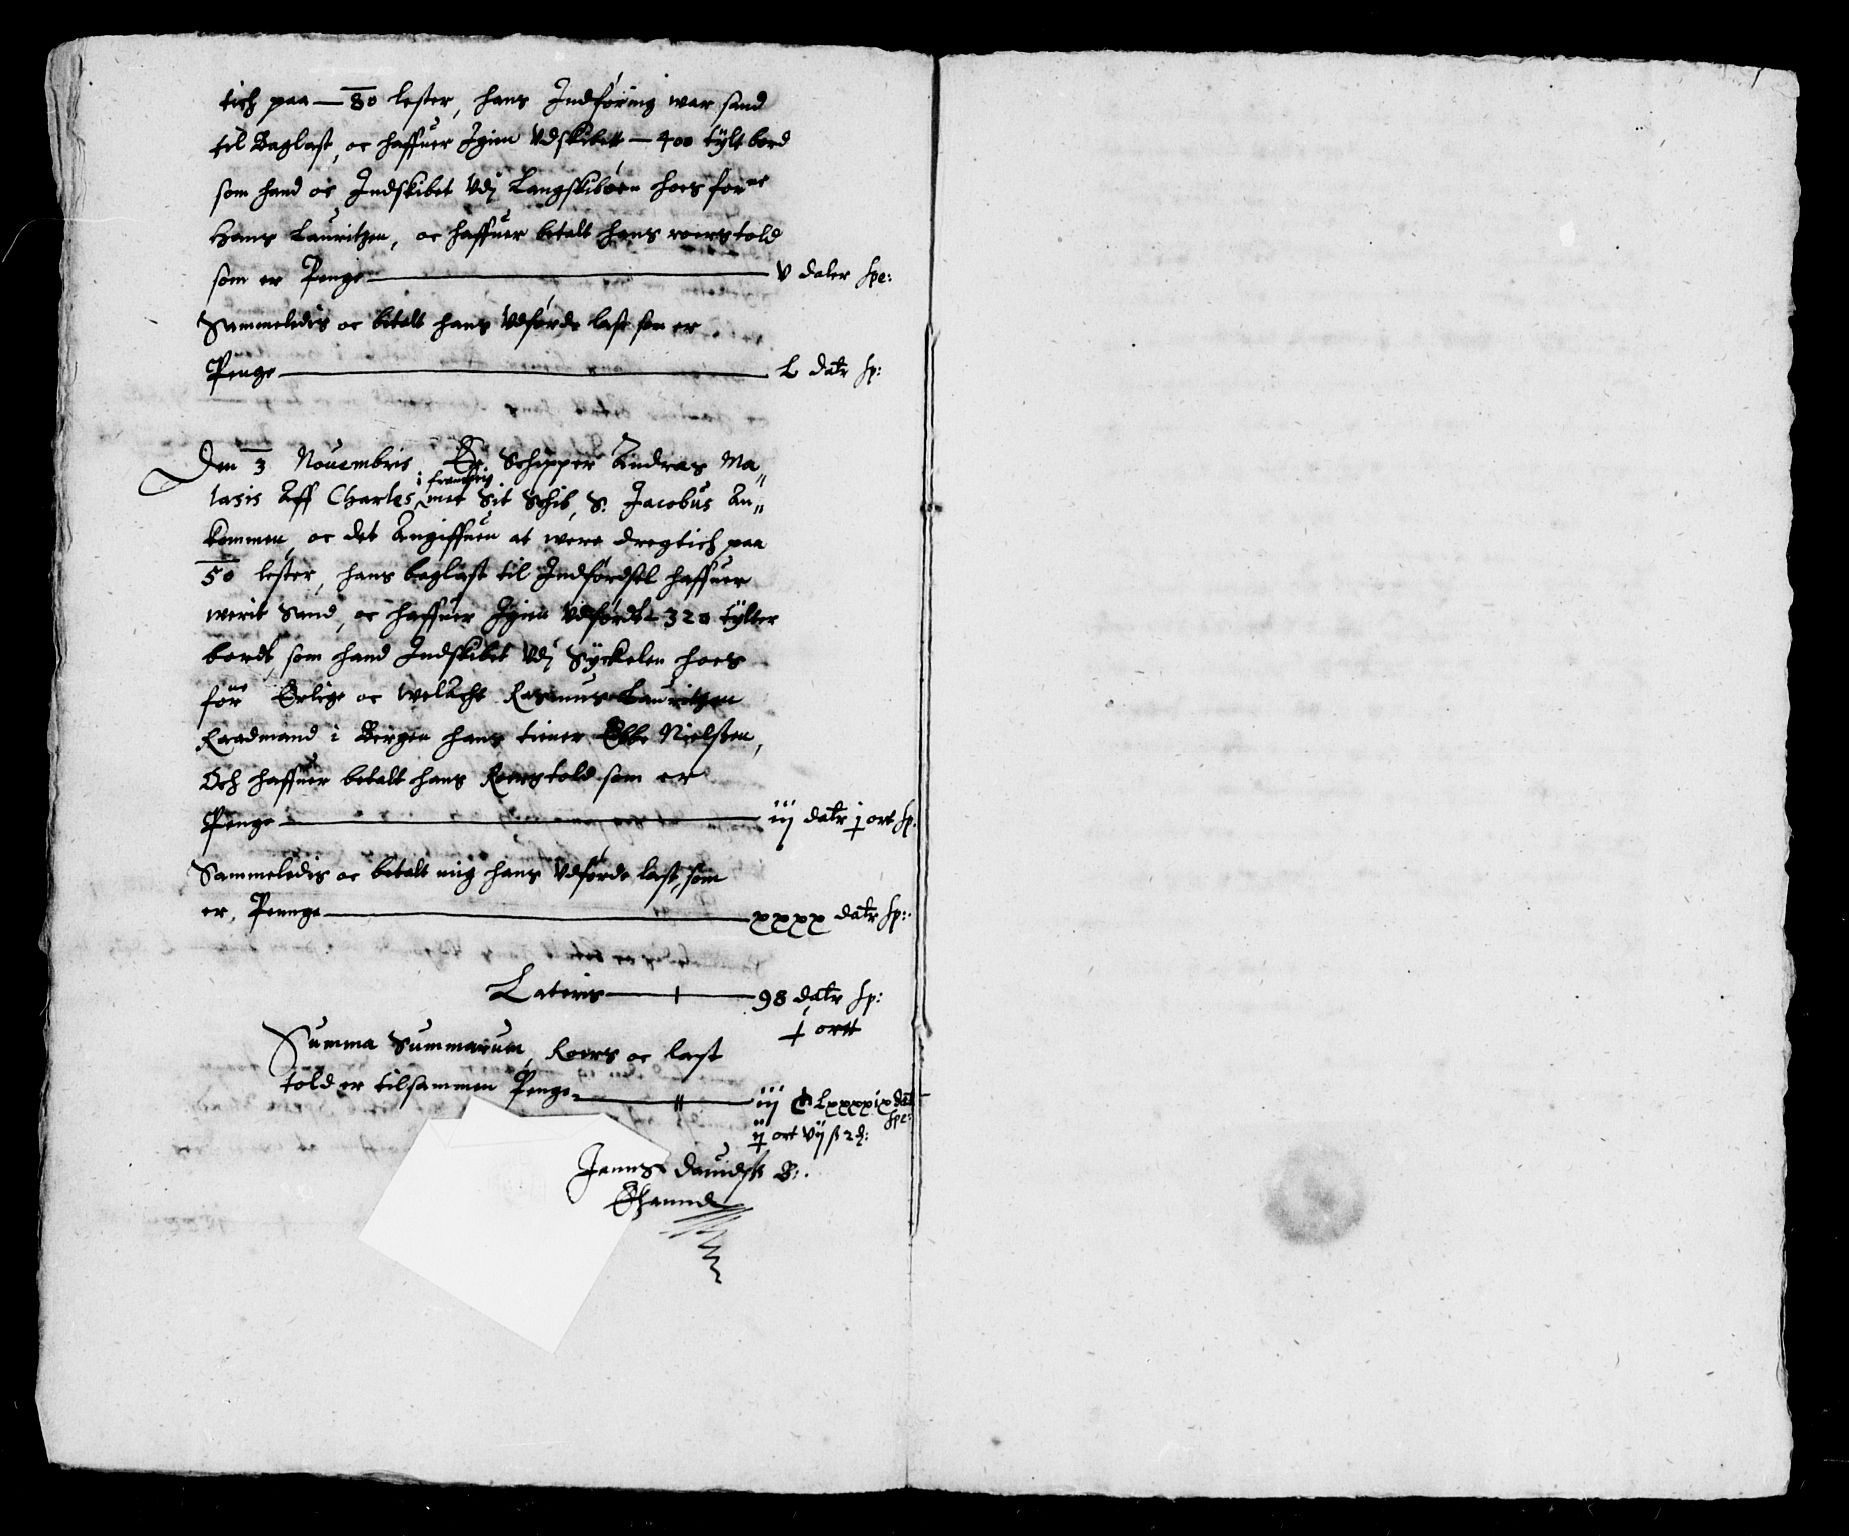 tich paa — 80 lester, hans Indføring war sand
til Baglast, oc haffuer Igien Vdskibett — 400 tylt bord
som hand oc Indskibet Vdj Langskiboen hoes forne
Hans Lauritzen, oc haffuer betalt hans roerstold
som er Penge — V daler spe:
Sammeledis oc betalt hans Vdførde last som er
Penge — L datr sp:
Den 3 Nouembris Er Schipper Andreas Ma-
lasis Aff Charles i franckrig met Sit Schib, S. Jacobus An-
kommen, oc det Angiffuen at were dregtich paa
50 lester, hans baglast til Indførdsel haffuer
werit Sand, oc haffuer Igien Vdførdt 320 tylter
bordt, som hand Indskibet Vdj Syckelen hoes
forne Erlige oc welacht Rasmus Lauritzen
Raadmand i Bergen hans tiener Ebbe Nielssen,
Och haffuer betalt hans Roerstold som er
Penge — iij datr j ort sp.
Sammeledis oc betalt mig hans Vdførde last, som
er, Pennge — xxxx datr sp:
Lateris — 98 datr sp:
j ortt
Summa Summarum, Roers oc last
told er tilsammen Penge — iij C Lxxxxix dat
spe:
ij ort Vij ß 2 d:
Jenns Dauidß B:
Ehannd